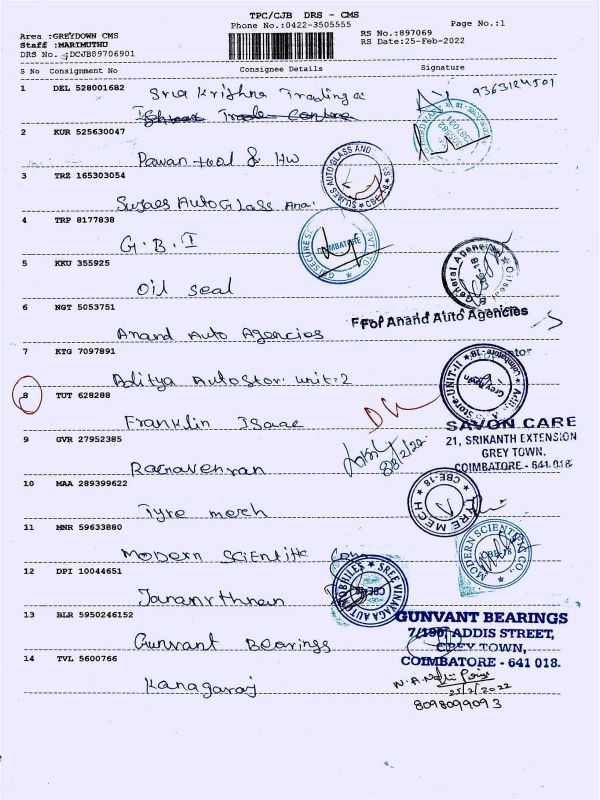 TPC/CJB DRS - CMS
Phone No.:0422-3505555
Page No.:1
Area :GREYDOWN CMS
Staff :MARIMUTHU
DRS No. :DCJB89706901
RS No.:897069
RS Date:25-Feb-2022
S No Consignment No Consignee Details Signature
1 DEL 528001682 Sria Krishna Trading & 9363124501
2 KUR 525630047
Pawan tool & HW
3 TRZ 165303054
SUJAES AUTO GLASS AND
Sujaes Auto Glass Ana.
4 TRP 8177838
G.B.I
COIMBATORE
5 KKU 355925
Oil seal
General Agencies
6 NGT 5053751
For Anand Auto Agencies
Anand Auto Agencies
7 KTG 7097891
Aditya Autostor. unit-2
Store-UNIT-II
8 TUT 628288
Franklin Isaac
SAVON CARE
9 GVR 27952385
21, SRIKANTH EXTENSION
GREY TOWN.
COIMBATORE - 641 018
Ragnavenran
10 MAA 289399622
Tyre mech
TYRE MECH CBE-18
11 MNR 59633880
Modern Scientific Com
MODERN SCIENTIFIC CO., CBE-18
12 DPI 10044651
SREE VINAYAGA AUTOMOBILES
Jananrthnan
13 BLR 5950246152
GUNVANT BEARINGS
7/190, ADDIS STREET,
GREY TOWN,
COIMBATORE - 641 018.
Gunvant Bearings
14 TVL 5600766
Kanagaraj
25/2/2022
8098099093